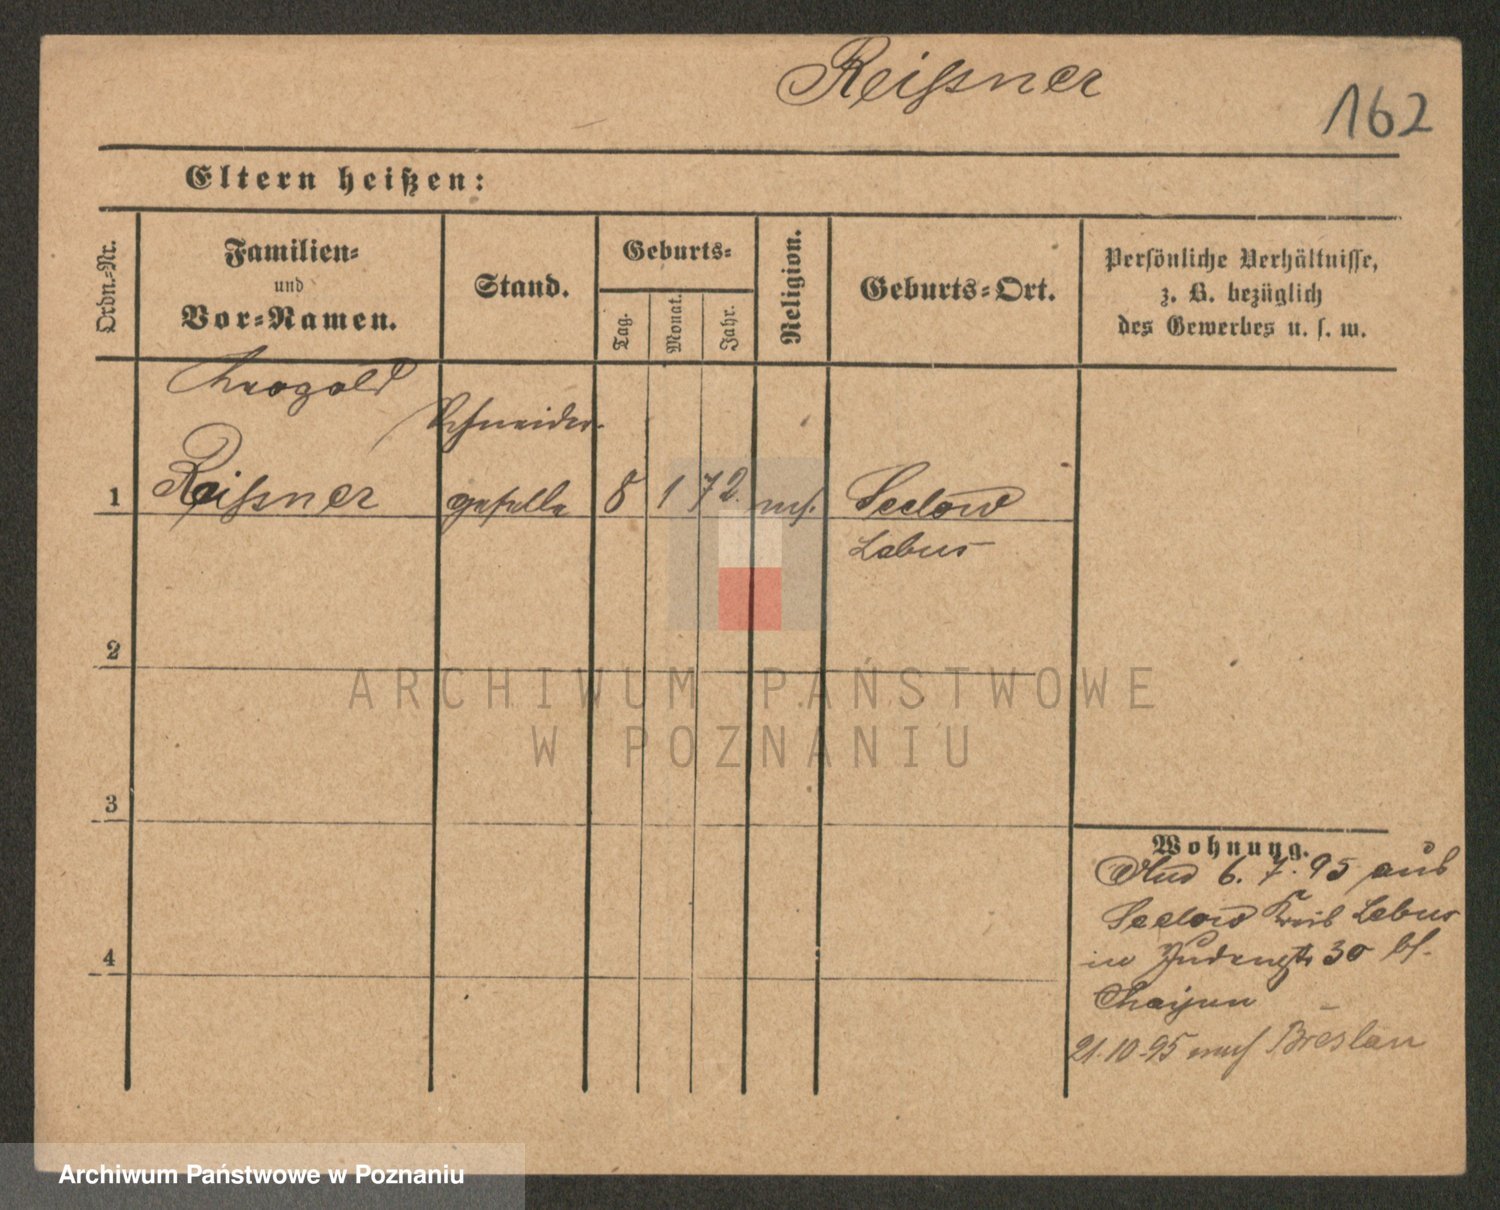 Reißner
162
Eltern heißen:
Ordn.-Nr.
Familien-
und
Vor-Namen.
Stand.
Geburts-
Tag.
Monat.
Jahr.
Religion.
Geburts-Ort.
Persönliche Verhältnisse,
z. B. bezüglich
des Gewerbes u. s. w.
Leopold
Schneider-
1 Reißner geselle 8 1 72. Seelow
Lebus
2
ARCHIWUM PAŃSTWOWE
W POZNANIU
3
Wohnung.
6. 7. 95 aus
Seelow Kreis Lebus
in Judenstr 30 bf.
4
21.10.95 nach Breslau
Archiwum Państwowe w Poznaniu